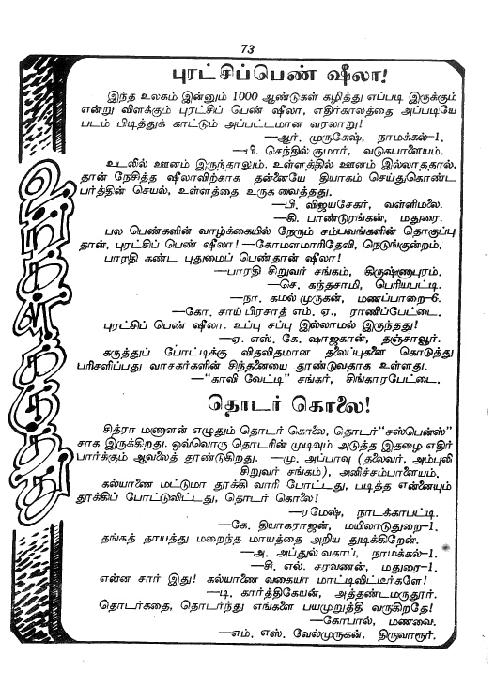 73
புரட்சிப்பெண் ஷீலா!
இந்த உலகம் இன்னும் 1000 ஆண்டுகள் கழித்து எப்படி இருக்கும்
என்று விளக்கும் புரட்சிப் பெண் ஷீலா, எதிர்காலத்தை அப்படியே
படம் பிடித்துக் காட்டும் அப்பட்டமான வரலாறு!
—ஆர். முருகேஷ், நாமக்கல்-1.
—பி. செந்தில் குமார், வடுகபாளையம்.
உடலில் ஊனம் இருந்தாலும், உள்ளத்தில் ஊனம் இல்லாததால்,
தான் நேசித்த ஷீலாவிற்காக தன்னையே தியாகம் செய்துகொண்ட
பர்த்தின் செயல், உள்ளத்தை உருக வைத்தது.
—பி. விஜயசேகர், வள்ளிமலை.
—கி. பாண்டுரங்கன், மதுரை.
பல பெண்களின் வாழ்க்கையில் நேரும் சம்பவங்களின் தொகுப்பு
தான், புரட்சிப் பெண் ஷீலா!—கோமளமாரிதேவி, நெடுங்குன்றம்.
பாரதி கண்ட புதுமைப் பெண்தான் ஷீலா!
—பாரதி சிறுவர் சங்கம், கிருஷ்ணாபுரம்.
—செ. கந்தசாமி, பெரியபட்டி.
—நா. கமல் முருகன், மணப்பாறை-6.
—கோ. சாய் பிரசாத் எம். ஏ., ராணிப்பேட்டை.
புரட்சிப் பெண் ஷீலா. உப்பு சப்பு இல்லாமல் இருந்தது!
—ஏ. எஸ். கே. ஷாஜகான், தஞ்சாவூர்.
கருத்துப் போட்டிக்கு விதவிதமான தலைப்புகளை கொடுத்து
பரிசளிப்பது வாசகர்களின் சிந்தனையை தூண்டுவதாக உள்ளது.
—"காவி வேட்டி" சங்கர், சிங்காரபேட்டை.
தொடர் கொலை!
சித்ரா மணாளன் எழுதும் தொடர் கொலை, தொடர் "சஸ்பென்ஸ்"
சாக இருக்கிறது. ஒவ்வொரு தொடரின் முடிவும் அடுத்த இதழை எதிர்
பார்க்கும் ஆவலைத் தூண்டுகிறது. —மு. அப்பாவு (தலைவர். அம்புலி
சிறுவர் சங்கம்), அனிச்சம்பாளையம்.
கல்யாணை மட்டுமா தூக்கி வாரி போட்டது, படித்த என்னையும்
தூக்கிப் போட்டுவிட்டது, தொடர் கொலை!
—ரமேஷ், நாடக்காபட்டி.
—கே. தியாகராஜன், மயிலாடுதுறை-1.
தங்கத் தாயத்து மறைந்த மாயத்தை அறிய துடிக்கிறேன்.
—அ. அப்துல் வகாப், நாமக்கல்-1.
—சி. எல். சரவணன், மதுரை-1.
என்ன சார் இது! கல்யாணை வகையா மாட்டிவிட்டீர்களே!
—டி. கார்த்திகேயன், அத்தண்டமருதூர்.
தொடர்கதை, தொடர்ந்து எங்களை பயமுறுத்தி வருகிறதே!
—கோபால், மணவை.
—எம். எஸ். வேல்முருகன், திருவாரூர்.